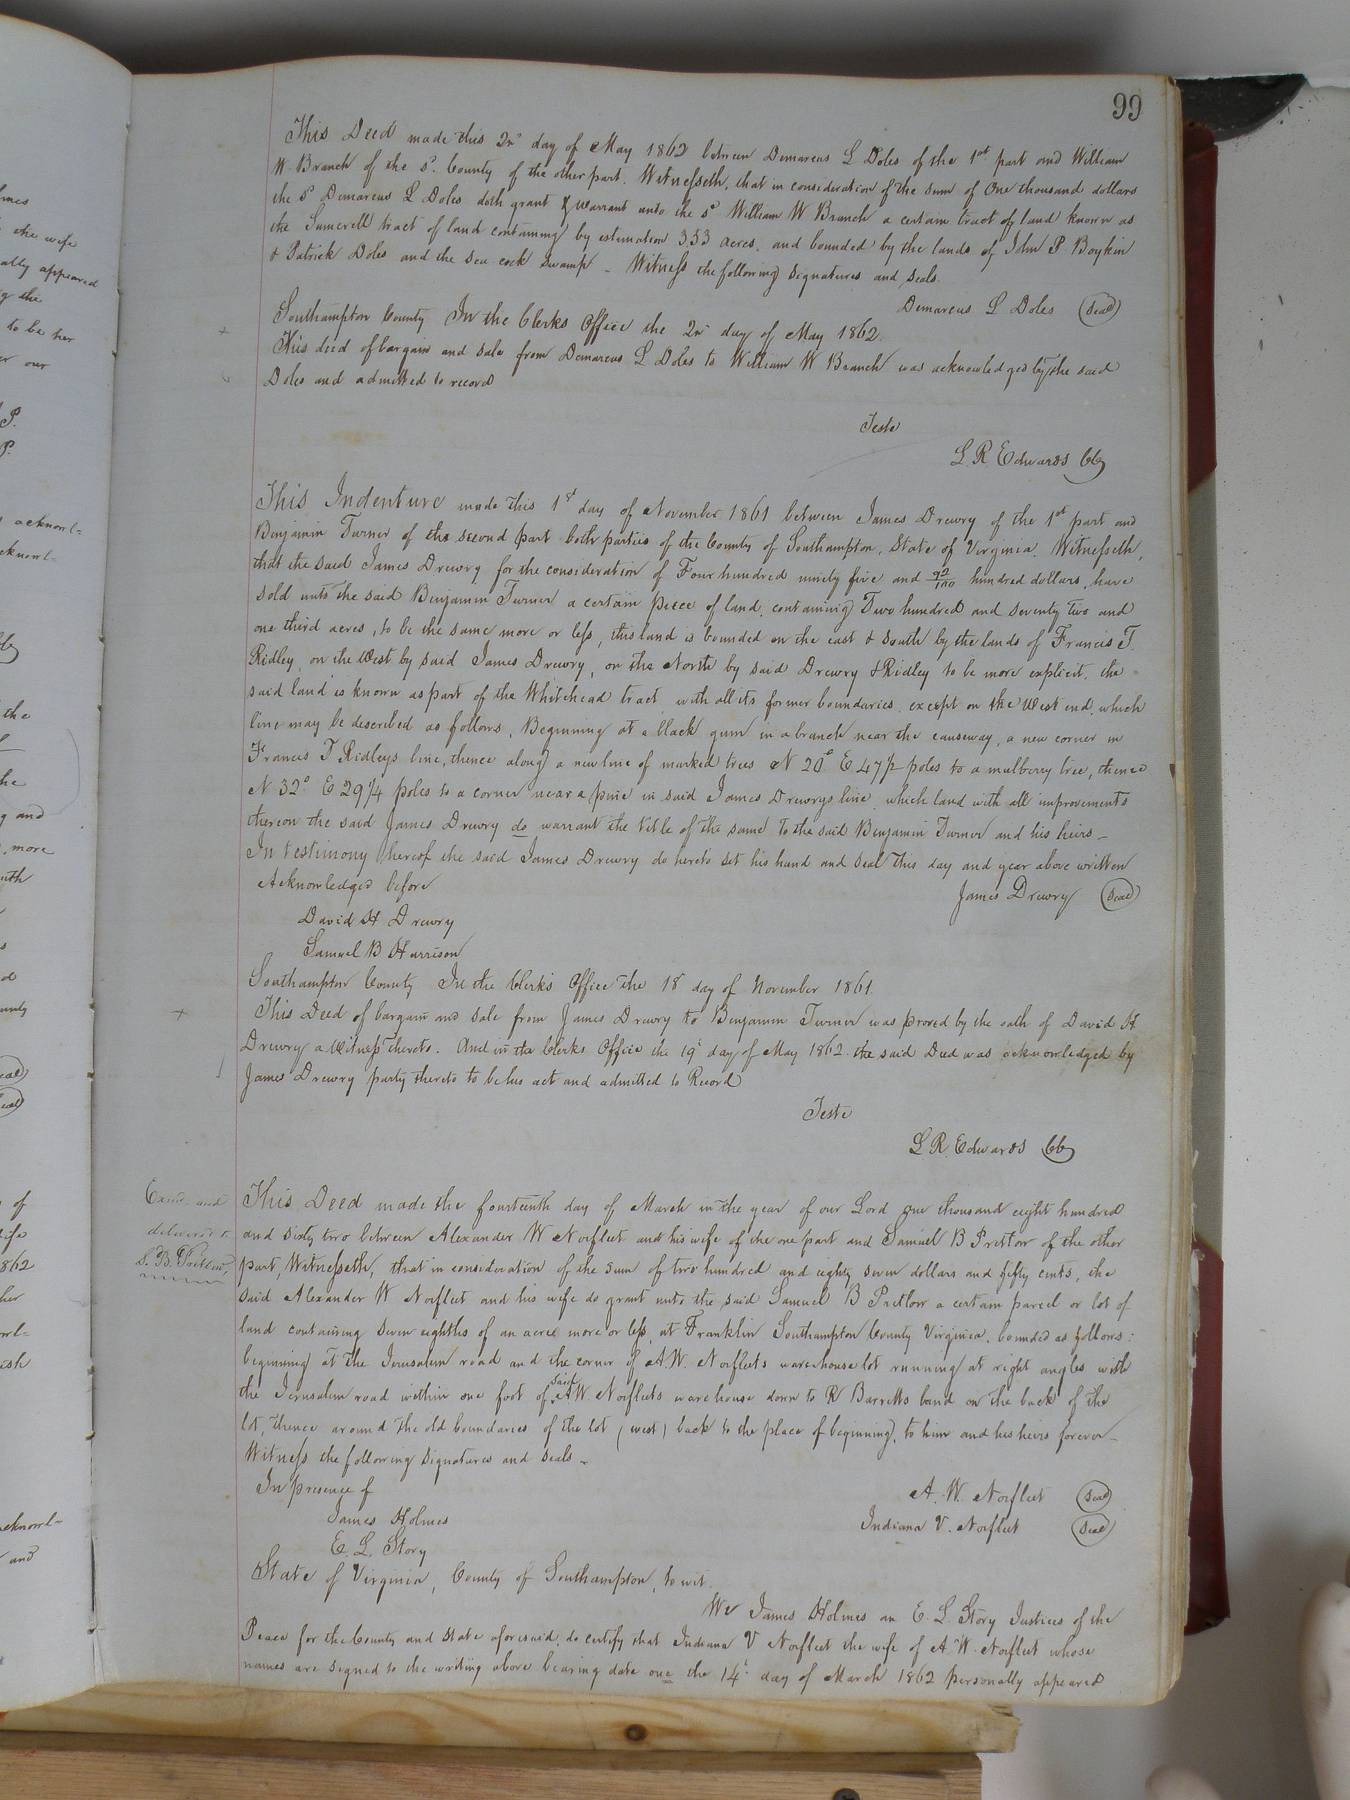 99
This Deed made this 2nd day of May 1862 between Demarcus L Doles of the 1st part and William
W Branch of the sd. County of the other part. Witnesseth, that in consideration of the sum of One thousand dollars
the sd Demarcus L Doles doth grant & warrant unto the sd William W Branch a certain tract of land known as
the Sumerell tract of land containing by estimation 353 acres, and bounded by the lands of John P Boykin
& Patrick Doles and the Sea cock Swamp - Witness the following signatures and seals.
Demarcus L Doles (Seal)
Southampton County In the Clerks Office the 2nd day of May 1862.
This deed of bargain and sale from Demarcus L Doles to William W Branch was acknowledged by the said
Doles and admitted to record
Teste
L. R. Edwards CC
This Indenture made this 1st day of November 1861 between James Drewry of the 1st part and
Benjamin Turner of the second part both parties of the County of Southampton, State of Virginia. Witnesseth,
that the said James Drewry for the consideration of Four hundred ninety five and 92/100 hundred dollars, have
sold unto the said Benjamin Turner a certain piece of land, containing Two hundred and seventy two and
one third acres, to be the same more or less, this land is bounded on the east & South by the lands of Francis T.
Ridley, on the West by said James Drewry, on the North by said Drewry & Ridley to be more explicit, the
said land is known as part of the Whitehead tract with all its former boundaries except on the West end, which
line may be described as follows, Beginning at a black gum in a branch near the causeway, a new corner in
Francis T Ridleys line, thence along a new line of marked trees N 20° E 47 1/2 poles to a mulberry tree, thence
N 32° E 29 1/4 poles to a corner near a pine in said James Drewrys line, which land with all improvements
thereon the said James Drewry do warrant the title of the same to the said Benjamin Turner and his heirs -
In testimony hereof the said James Drewry do hereto set his hand and seal this day and year above written
Acknowledged before
James Drewry (Seal)
David H Drewry
Samuel B Harrison
Southampton County In the Clerk's Office the 18 day of November 1861.
This Deed of bargain and sale from James Drewry to Benjamin Turner was proved by the oath of David H
Drewry a Witness thereto. And in the Clerks Office the 19 day of May 1862 the said Deed was acknowledged by
James Drewry party thereto to be his act and admitted to Record
Teste
L R. Edwards CC
Examd. and
delivered to
S. B. Pretlow
This Deed made the fourteenth day of March in the year of our Lord one thousand eight hundred
and sixty two between Alexander W Norfleet and his wife of the one part and Samuel B Pretlow of the other
part, Witnesseth, that in consideration of the sum of two hundred and eighty seven dollars and fifty cents, the
said Alexander W Norfleet and his wife do grant unto the said Samuel B Pretlow a certain parcel or lot of
land containing seven eighths of an acre more or less, at Franklin Southampton County Virginia, bounded as follows:
beginning at the Jerusalem road and the corner of A.W. Norfleets warehouse lot running at right angles with
the Jerusalem road within one foot of said A.W. Norfleets warehouse down to R Barretts band on the back of the
lot, thence around the old boundaries of the lot (west) back to the place of beginning, to him and his heirs forever -
Witness the following signatures and seals -
In presence of
A. W. Norfleet (Seal)
James Holmes
Indiana V. Norfleet (Seal)
E. L. Story
State of Virginia, County of Southampton, to wit.
We James Holmes an E. L. Story Justices of the
Peace for the County and State aforesaid, do certify that Indiana V Norfleet the wife of A. W. Norfleet whose
names are signed to the writing above bearing date one the 14th day of March 1862 personally appeared